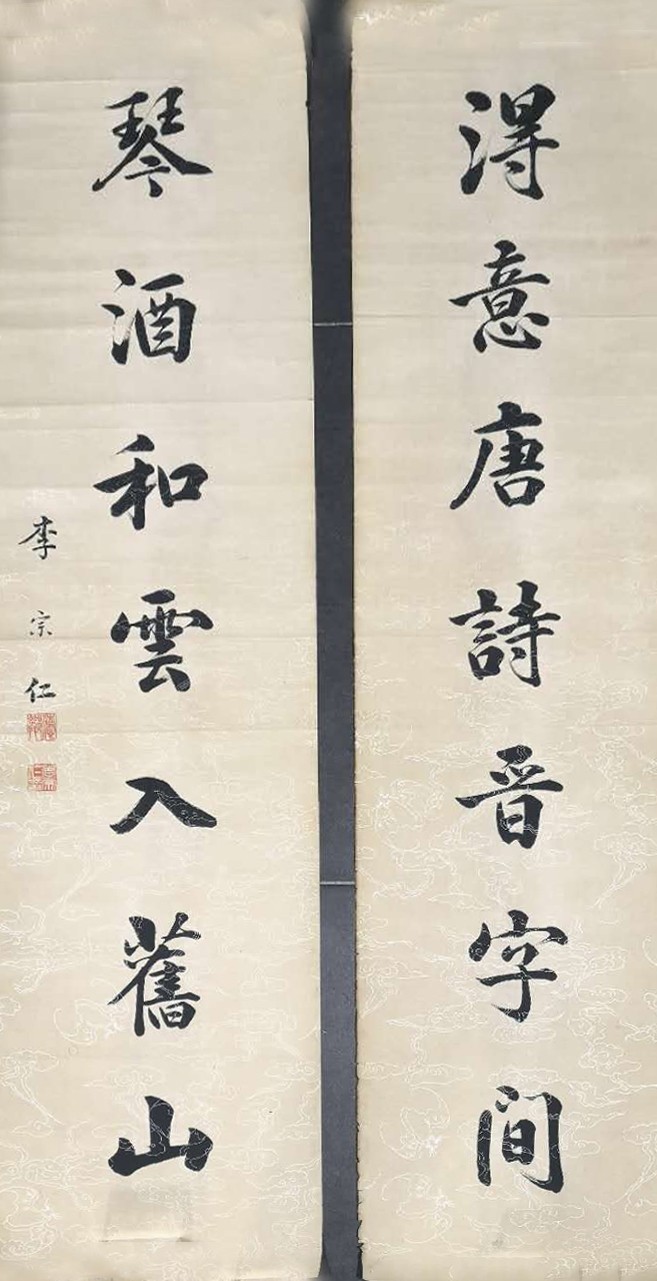 淂意唐詩晋字间
琴酒和雲入舊山
李宗仁